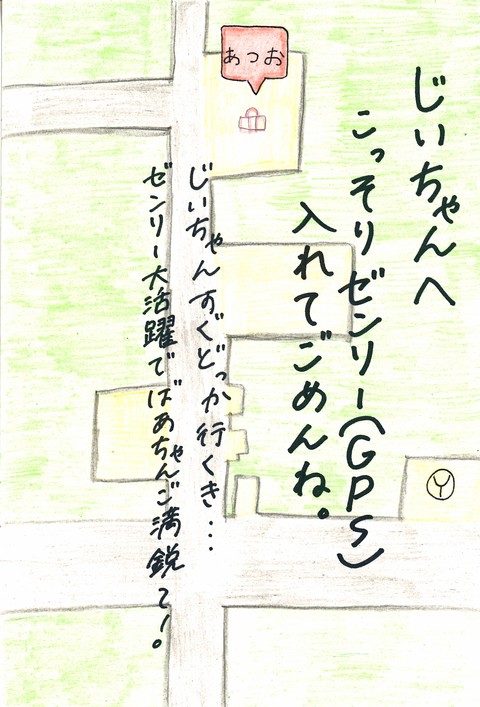 じいちゃんへ
こっそりゼンリー(GPS)
入れてごめんね。
あつお
じいちゃんすぐどっか行くき...
ゼンリー大活躍でばあちゃんご満鋭て!